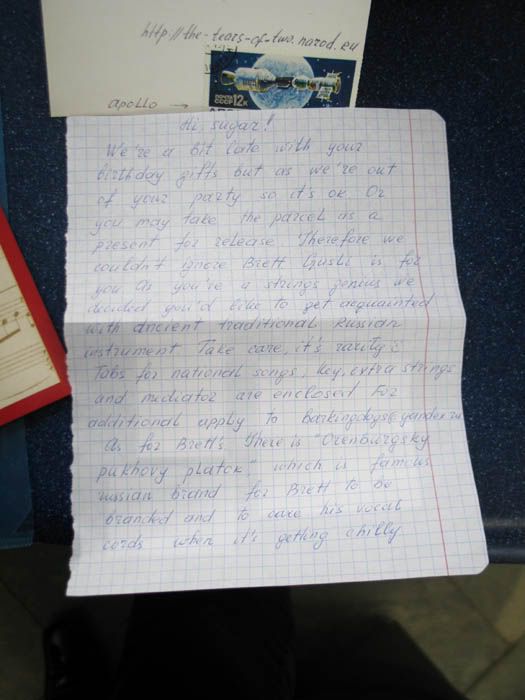 http://the-tears-of-two.narod.ru
apollo →
почта
СССР 12к
Hi, sugar!
We're a bit late with your
birthday gifts but as we're out
of your party so it's ok. Or
you may take the parcel as a
present for release. Therefore we
couldn't ignore Brett. Gusli is for
you. As you're a strings genius we
decided you'd like to get acquainted
with ancient traditional Russian
instrument. Take care, it's rarity
Tabs for national songs, key, extra strings
and mediator are enclosed. For
additional apply to barkingdogs@yandex.ru
As for Brett's. There is "Orenburgsky
pukhovy platok", which is famous
russian brand for Brett to be
branded and to care his vocal
cords when it's getting chilly